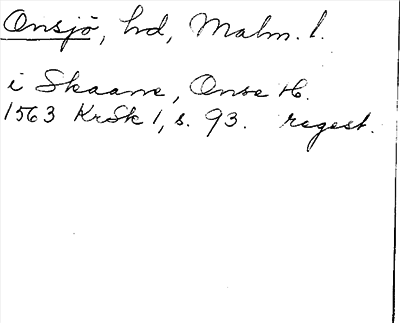 Onsjö, hd, Malm. l.
i Skaane, Onse H.
1563 KrSk 1, s. 93. regest.